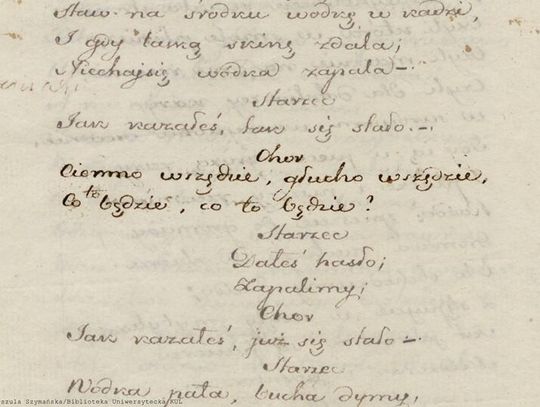 Staw na środku wódkę w kadzi,
I gdy tamą skinę zdala;
Niechajsię wódka zapala —
Starzec
Jak kazałeś, tak się stało. —
Chor
Ciemno wszędzie, głucho wszędzie,
Co to będzie, co to będzie?
Starzec
Dałeś hasło;
Zapalimy;
Chor
Jak kazałeś, już się stało —
Starzec
Wódka pała, bucha dymy;
szula Szymańska/Biblioteka Uniwersytecka KUL